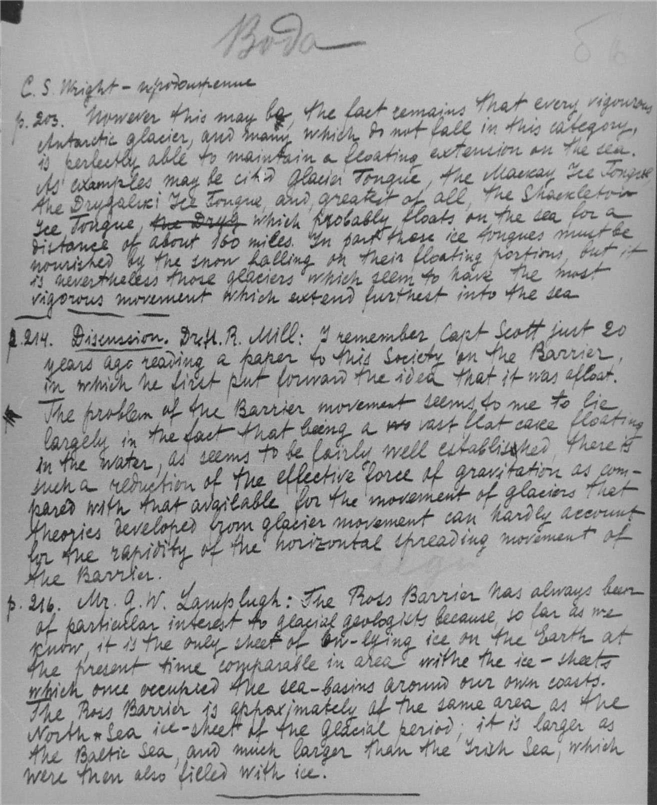 Вода
C. S. Wright - продолжение
p. 203. However this may be, the fact remains that every vigourous
Antarctic glacier, and many which do not fall in this category,
is perfectly able to maintain a floating extension on the sea.
As examples may be cited Glacier Tongue, the Mackay Ice Tongue,
the Drygalski Ice Tongue, and, greatest of all, the Shackleton
Ice Tongue, the Dryg which probably floats on the sea for a
distance of about 160 miles. In part these ice tongues must be
nourished by the snow falling on their floating portions, but it
is nevertheless those glaciers which seem to have the most
vigorous movement which extend furthest into the sea
p. 214. Discussion. Dr H. R. Mill: I remember Capt Scott just 20
years ago reading a paper to this Society on the Barrier,
in which he first put forward the idea that it was afloat.
The problem of the Barrier movement seems to me to lie
largely in the fact that being a vast flat cake floating
in the water, as seems to be fairly well established, there is
such a reduction of the effective force of gravitation as com-
pared with that available for the movement of glaciers that
theories developed from glacier movement can hardly account
for the rapidity of the horizontal spreading movement of
the Barrier.
p. 216. Mr. G. W. Lamplugh: The Ross Barrier has always been
of particular interest to glacial geologists because, so far as we
know, it is the only sheet of low-lying ice on the Earth at
the present time comparable in area withe the ice-sheets
which once occupied the sea-basins around our own coasts.
The Ross Barrier is approximately of the same area as the
North-Sea ice-sheet of the glacial period; it is larger as
the Baltic Sea, and much larger than the Irish Sea, which
were then also filled with ice.